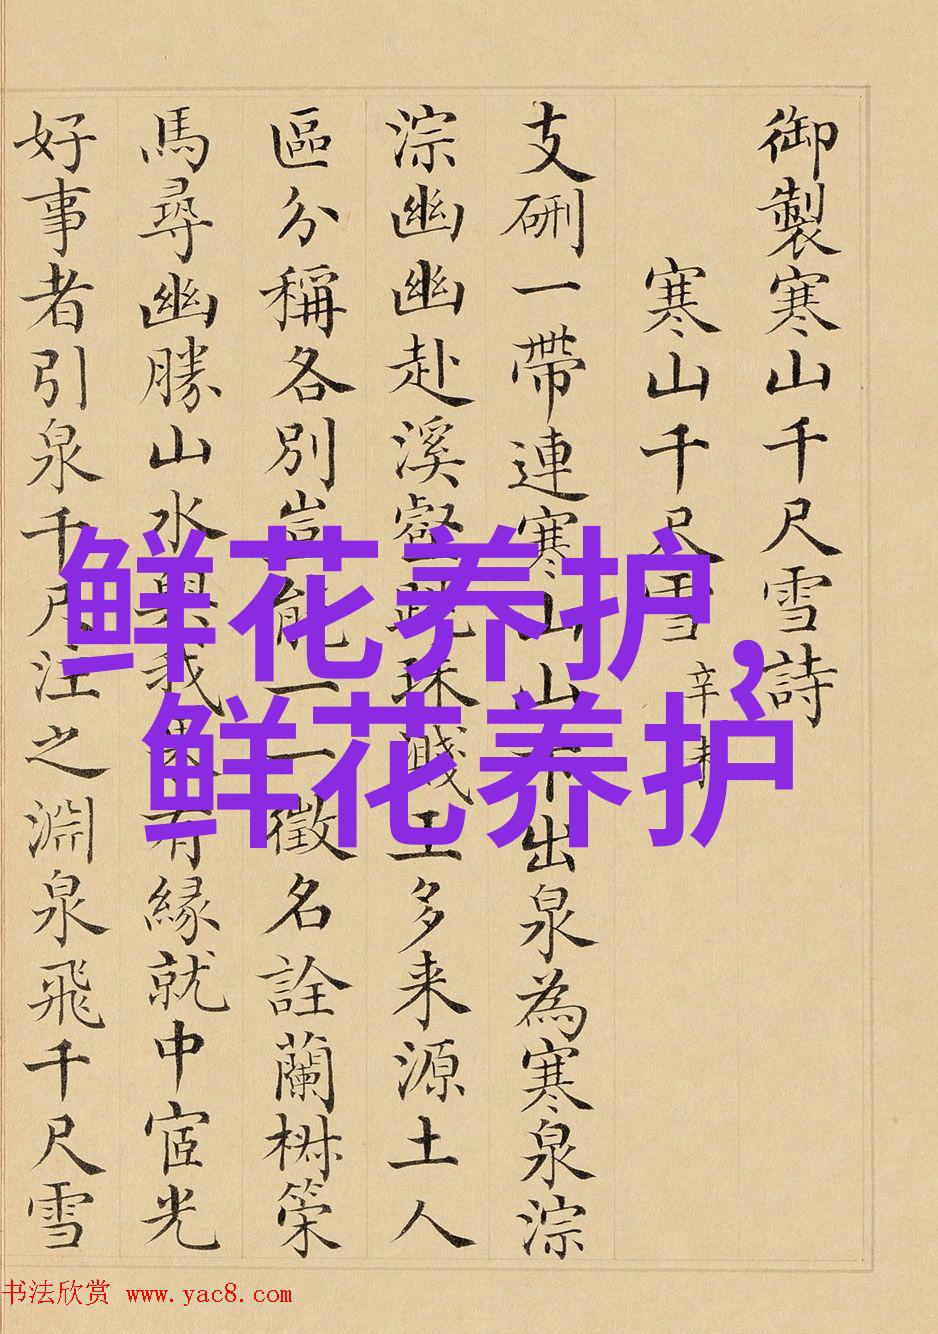 御製寒山千尺雪詩
寒山千尺雪 辛未
支硎一帶連寒山山下出泉為寒泉淙
淙幽幽赴溪壑跳珠濺玉多来源土人
區分稱各別豈能一一徵名詮蘭椒策
馬尋幽勝山水與我果有緣就中宧光
好事者引泉千尺注之淵泉飛千尺雪
鲜花养护,
鲜花养护
书法欣赏 www.yac8.com